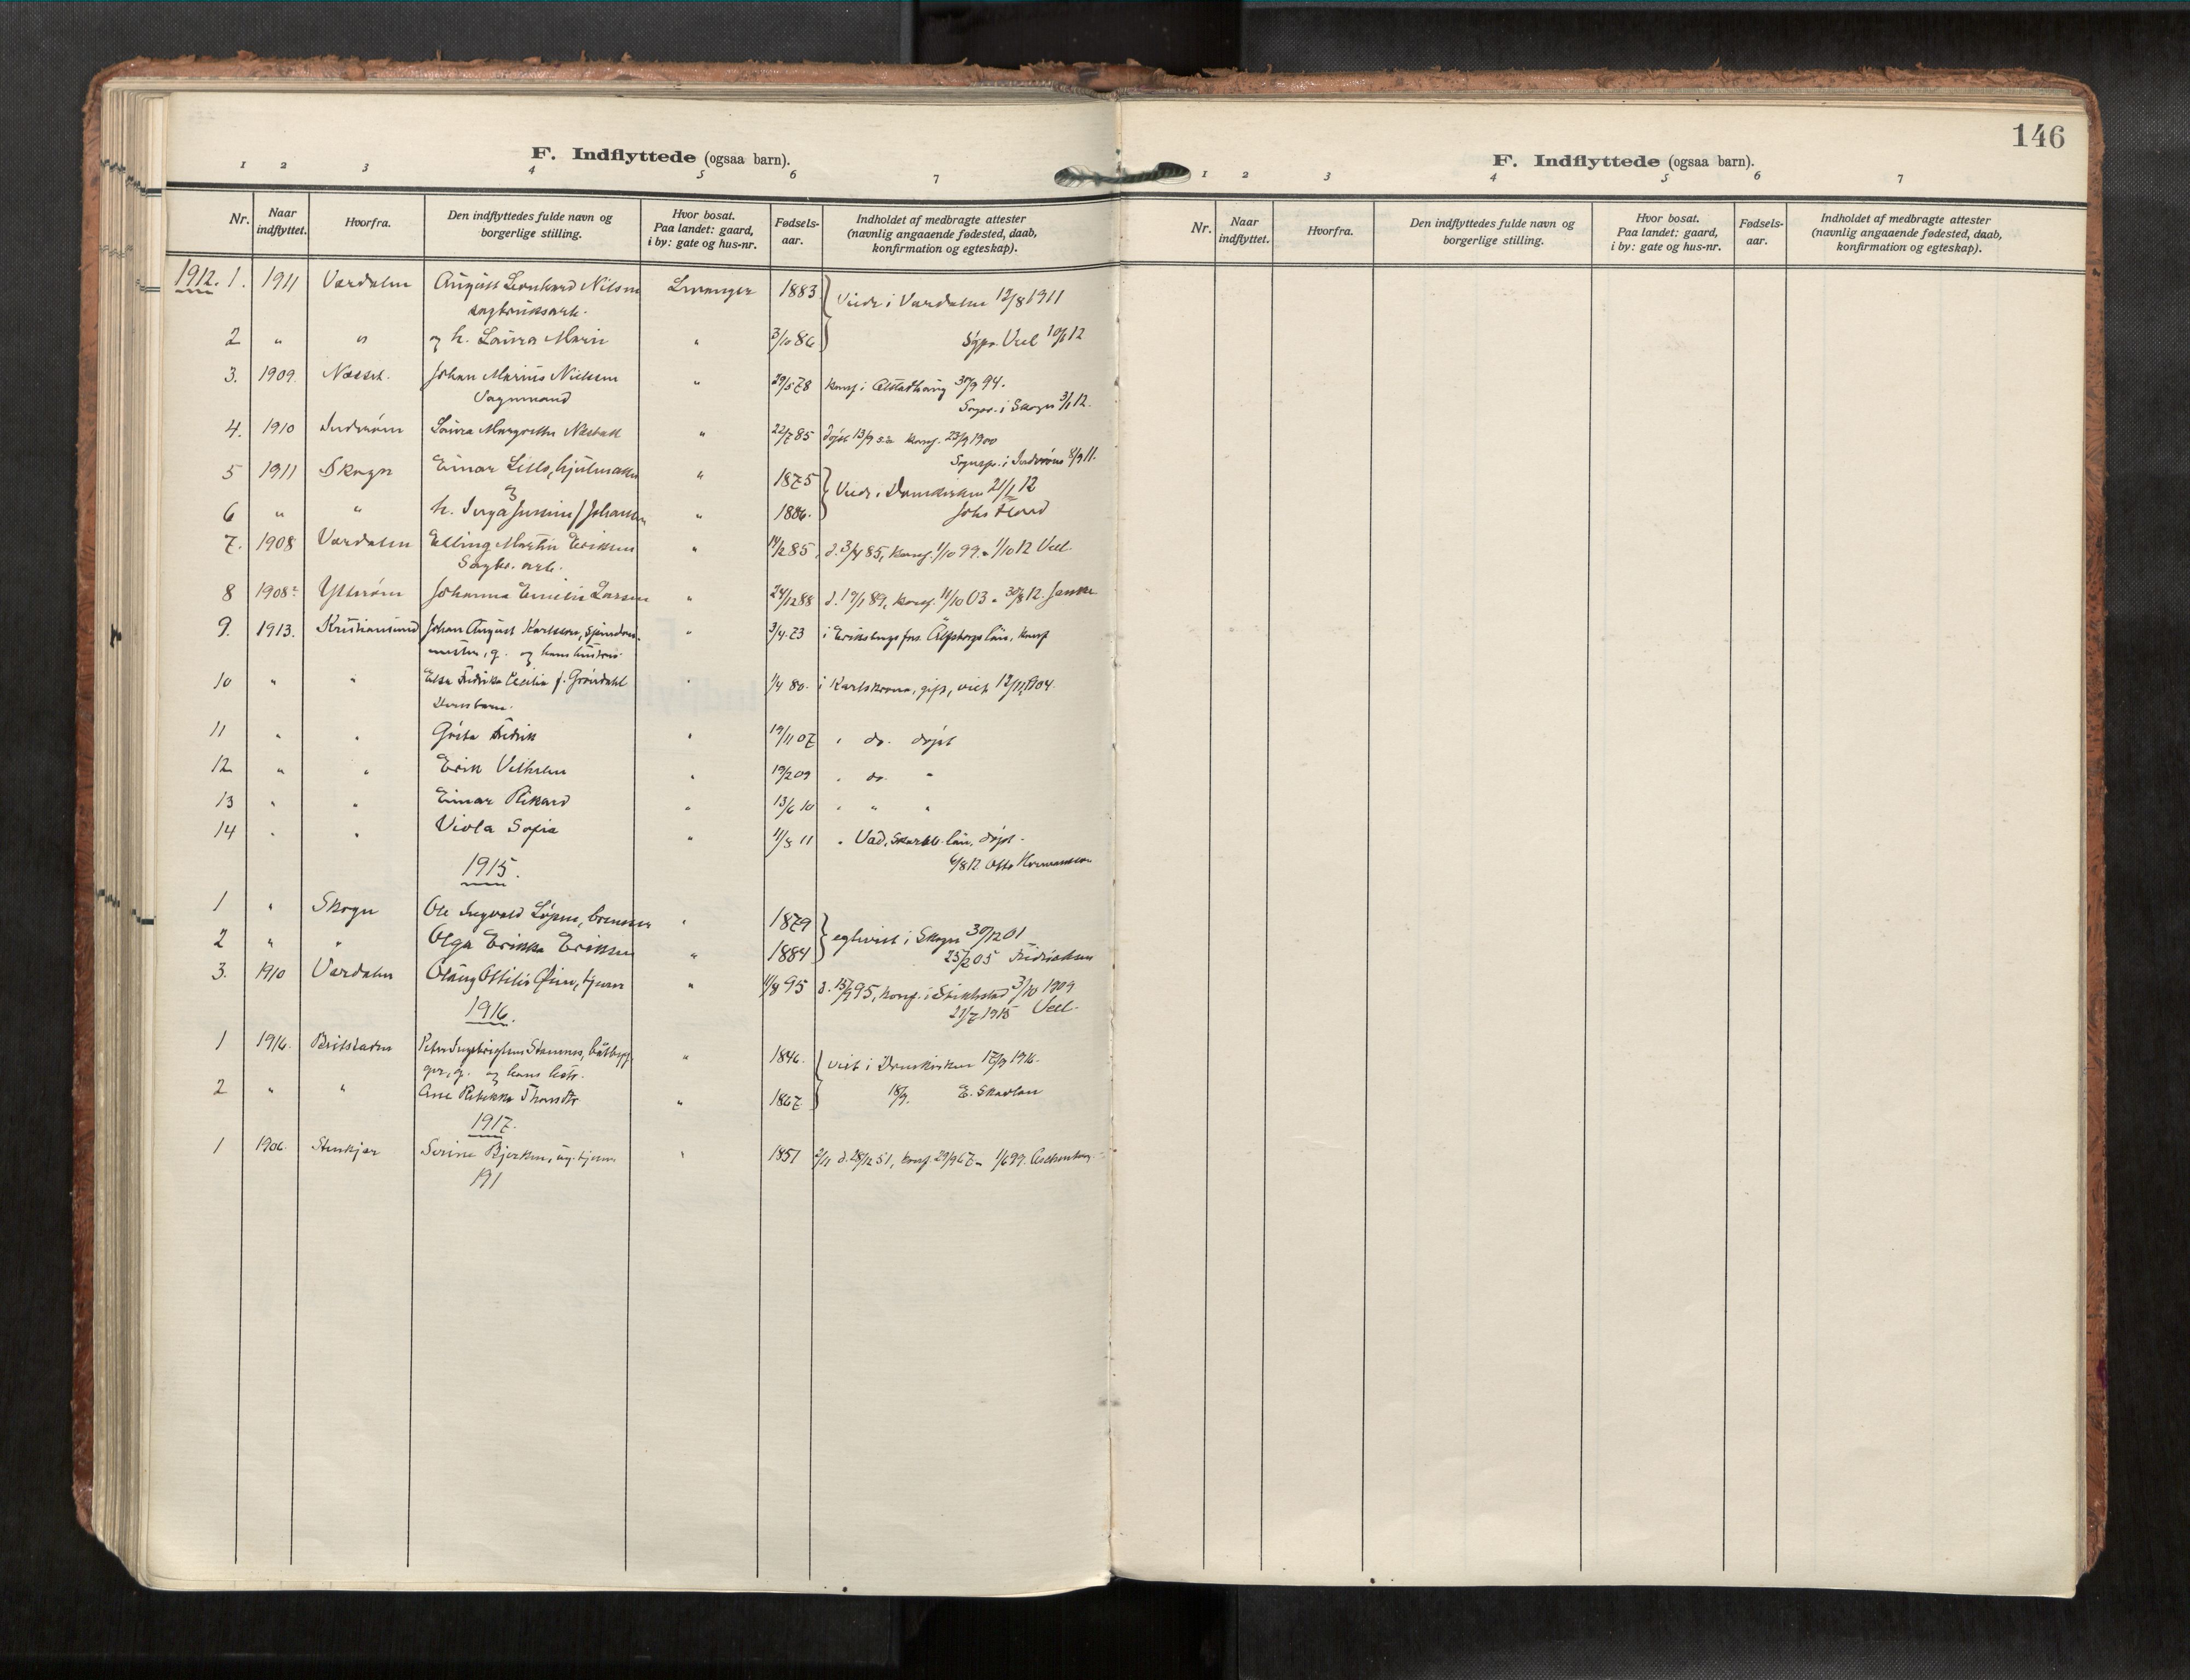 146
F. Indflyttede (ogsaa barn).
1 2 3 4 5 6 7
Nr. Naar indflyttet. Hvorfra. Den indflyttedes fulde navn og borgerlige stilling. Hvor bosat. Paa landet: gaard, i by: gate og hus-nr. Fødsels-aar. Indholdet af medbragte attester (navnlig angaaende fødested, daab, konfirmation og egteskap).
1912. 1. 1911 Værdalen August Leonhard Nilsen Levanger 1883 Viede i Værdalen 12/8 1911
sagbruksarb.
2 " " og h. Laura Marie " 3/10 86 Veel 10/1 12
3. 1909. Næsset. Johan Marius Nielsen " 29/5 78 konf. i Alstadhaug 30/9 94.
Vognmand i Skogn 3/1 12.
4. 1910 Inderøen Laura Margrethe " 22/7 85 døpt 13/9 s.a. konf. 23/9 1900
i Inderøen 8/9 11.
5 1911 Skogn Einar Lillo, hjulmaker " 1875 Viede i Domkirken 21/1 12
og
6 " " h. Inga / Johansen " 1886.
7. 1908 Værdalen Elling Martin Eriksen " 14/2 85, d. 3/4 85, konf. 1/10 99. " 1/10 12 Veel.
Sagbr. arb.
8 1908 Ytterøen Johanna Emilie Larsen " 24/12 88 d. 19/1 89, konf. 11/10 03. " 30/8 12.
9. 1913. Kristiansund Johan August Karlsson, " 3/4 73 i Eriksbergs frs. Älfsborgs län, konf
mester, g. og hans hustru
10 " " Elsa Fredrika Cecilia f. Gröndahl " 1/4 80. i Karlskrona, gift, viet 12/11 1904.
Deres barn.
11 " " Gösta Fredrik " 19/11 07 " do. døpt
12 " " Erik Vilhelm " 19/2 09 " do. "
13 " " Einar Rikard " 13/6 10 " " "
14 " " Viola Sofia " 11/8 11 " Vad, Skarab. län, døpt.
6/8 12. Otto Hermansson
1915.
1 " Skogn Ole Ingvald, " 1879 egteviet i Skogn 30/12 01
2 " " Olga Erikka Eriksen " 1884 25/2 05
3. 1910 Værdalen Olaug Ottilie, tjener " 11/8 95 d. 15/9 95, konf. i Stiklestad 3/10 1909
21/7 1915 Veel.
1916.
1 1916. Beitstaden Peter Ingebrigtsen, båtbyg- " 1846. viet i Domkirken 17/9 1916.
ger, g. og hans hustr.
2 " " Ane Rebekka " 1867. 18/9. E. Skavlan
1917.
1 1906. Stenkjær Serine, ug. tjener " 1851 d. 28/12 51, konf 29/9 67 " 1/6 99.
191
F. Indflyttede (ogsaa barn).
1 2 3 4 5 6 7
Nr. Naar indflyttet. Hvorfra. Den indflyttedes fulde navn og borgerlige stilling. Hvor bosat. Paa landet: gaard, i by: gate og hus-nr. Fødsels-aar. Indholdet af medbragte attester (navnlig angaaende fødested, daab, konfirmation og egteskap).